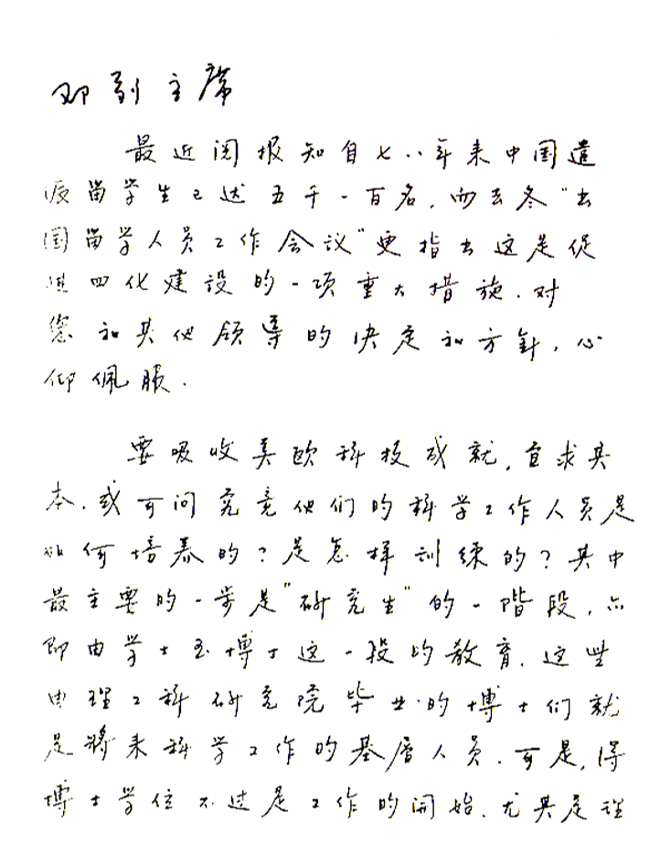 邓副主席
最近阅报知自七八年来中国遣
派留学生已达五千一百名，而去冬“出
国留学人员工作会议”更指出这是促
进四化建设的一项重大措施．对
您和其他领导的决定和方针，心
仰佩服．
要吸收美欧科技成就，宜求其
本．或可问究竟他们的科学工作人员是
如何培养的？是怎样训练的？其中
最主要的一步是“研究生”的一阶段，亦
即由学士至博士这一段的教育．这些
由理工科研究院毕业的博士们就
是将来科学工作的基层人员．可是，得
博士学位不过是工作的开始．尤其是理